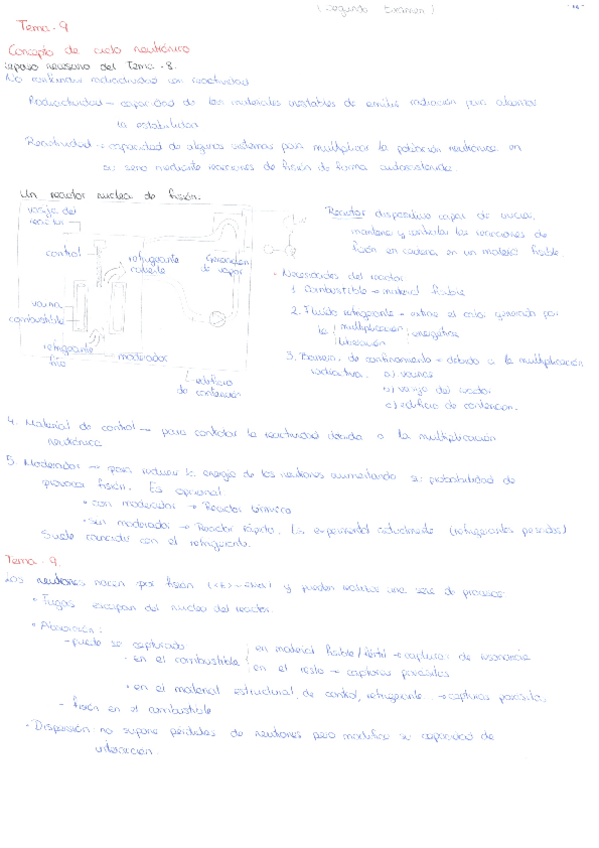 (Segundo Examen)
Tema-9
Concepto de ciclo neutrónico
repaso necesario del Tema-8.
No confundir radiactividad con reactividad
Radiactividad - capacidad de los materiales inestables de emitir radiación para alcanzar
la estabilidad
Reactividad → capacidad de algunos sistemas para multiplicar la población neutrónica en
su seno mediante reacciones de fisión de forma autosostenida.
Un reactor nuclear de fisión.
vasija del
reactor
control
refrigerante
caliente
Generación
de vapor
vaina
combustible
refrigerante
frío
moderador
edificio
de contención
Reactor dispositivo capaz de iniciar,
mantener y controlar las reacciones de
fisión en cadena en un material fisible.
- Necesidades del reactor
1. Combustible → material fisible
2. Fluido refrigerante - extrae el calor generado por
la multiplicación energética
liberación
3. Barreras de confinamiento - debido a la multiplicación
radiactiva. a) vainas
b) vasija del reactor
c) edificio de contención.
4. Material de control → para controlar la reactividad debida a la multiplicación
neutrónica
5. Moderador → para reducir la energía de los neutrones aumentando su probabilidad de
provocar fisión. Es opcional.
• con moderador → Reactor térmico
• sin moderador → Reactor rápido. Es experimental actualmente (refrigerantes pesados)
Suele coincidir con el refrigerante.
Tema-9.
Los neutrones nacen por fisión y pueden realizar una serie de procesos
• Fugas escapan del núcleo del reactor.
• Absorción:
- puede ser capturado
• en el combustible
en material fisible/fértil → capturas de resonancia
en el resto → capturas parásitas
• en el material estructural, de control, refrigerante... → captura parásita
- fisión en el combustible
• Dispersión no supone pérdidas de neutrones pero modifica su capacidad de
interacción.